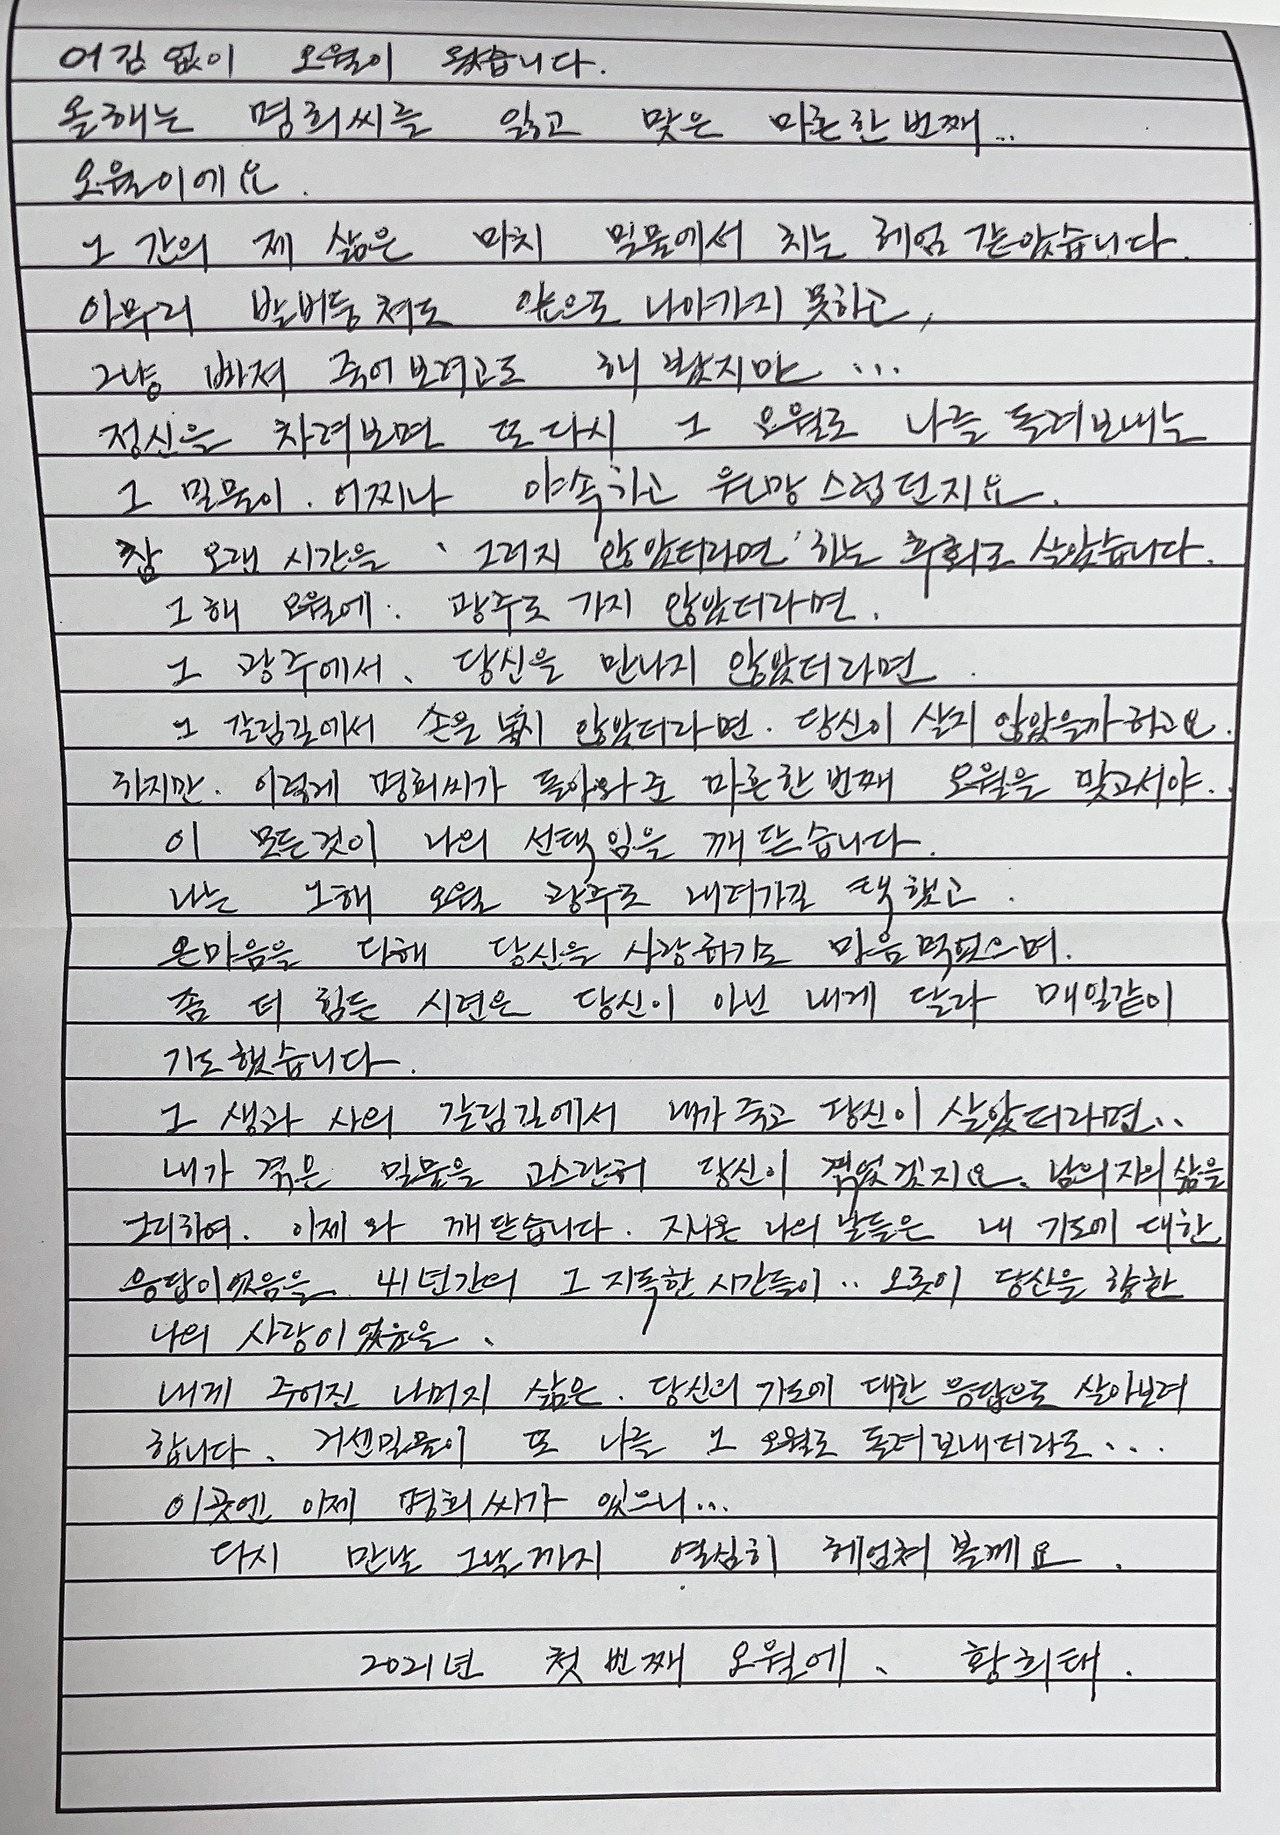 어김없이 오월이 왔습니다.
올해는 명희씨를 잃고 맞은 마흔한번째...
오월이에요.
그 간의 제 삶은 마치 밀물에서 치는 헤엄 같았습니다.
아무리 발버둥쳐도 앞으로 나아가지 못하고,
그냥 빠져 죽어보려고도 해 봤지만 ...
정신을 차려보면 또다시 그 오월로 나를 돌려보내는
그 밀물이. 어찌나 야속하고 원망스럽던지요.
참 오랜 시간을 '그러지 않았더라면' 하는 후회로 살았습니다.
그해 오월에. 광주로 가지 않았더라면.
그 광주에서, 당신을 만나지 않았더라면.
그 갈림길에서 손을 놓지 않았더라면. 당신이 살지 않았을까하고요.
하지만. 이렇게 명희씨가 돌아와준 마흔한번째 오월을 맞고서야..
이 모든것이 나의 선택임을 깨닫습니다.
나는 그해 오월 광주로 내려가길 택했고.
온마음을 다해 당신을 사랑하기로 마음먹었으며.
좀 더 힘든 시련은 당신이 아닌 내게 달라 매일같이
기도했습니다.
그 생과 사의 갈림길에서 내가 죽고 당신이 살았더라면..
내가 겪은 밀물을 고스란히 당신이 겪었겠지요. 남의자의 삶을
그리하여. 이제 와 깨닫습니다. 지나온 나의 날들은 내 기도에 대한
응답이었음을. 41년간의 그 지독한 시간들이.. 오롯이 당신을 향한
나의 사랑이었음을.
내게 주어진 나머지 삶은. 당신의 기도에 대한 응답으로 살아보려
합니다. 거센밀물이 또 나를 그 오월로 돌려보내더라도...
이곳엔 이제 명희씨가 있으니...
다시 만날 그날까지 열심히 헤엄쳐볼께요.
2021년 첫번째 오월에, 황희태.